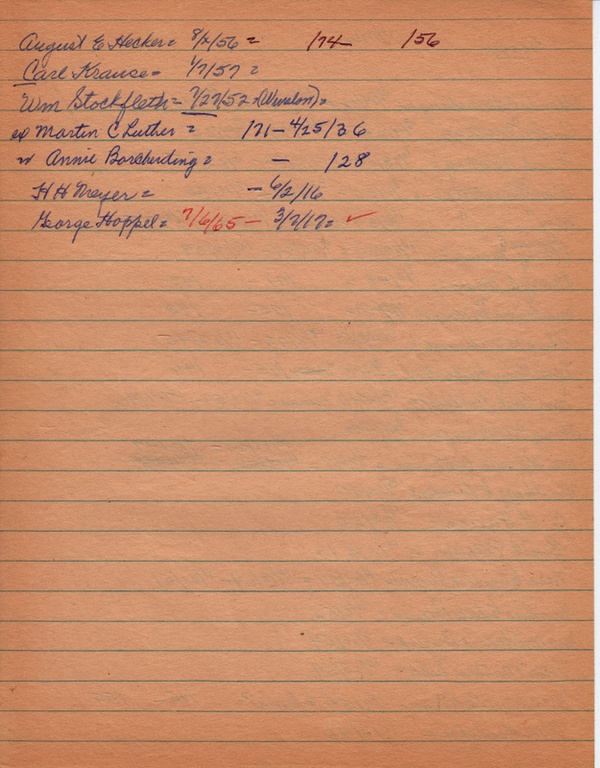 August E Hecker = 8/2/56 = 174 156
Carl Krause = 1/7/57 =
Wm Stockfleth = 7/27/52 =
Martin C Luther = 171 - 4/25/36
Annie Borcherding = - 128
H H Meyer = - 6/2/16
George Hoppel = 7/6/65 - 3/7/17 = ✓